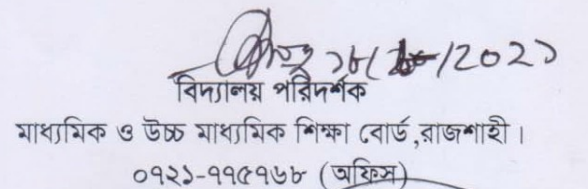 ১৮/১০/২০২১
বিদ্যালয় পরিদর্শক
মাধ্যমিক ও উচ্চ মাধ্যমিক শিক্ষা বোর্ড,রাজশাহী।
০৭২১-৭৭৫৭৬৮ (অফিস)